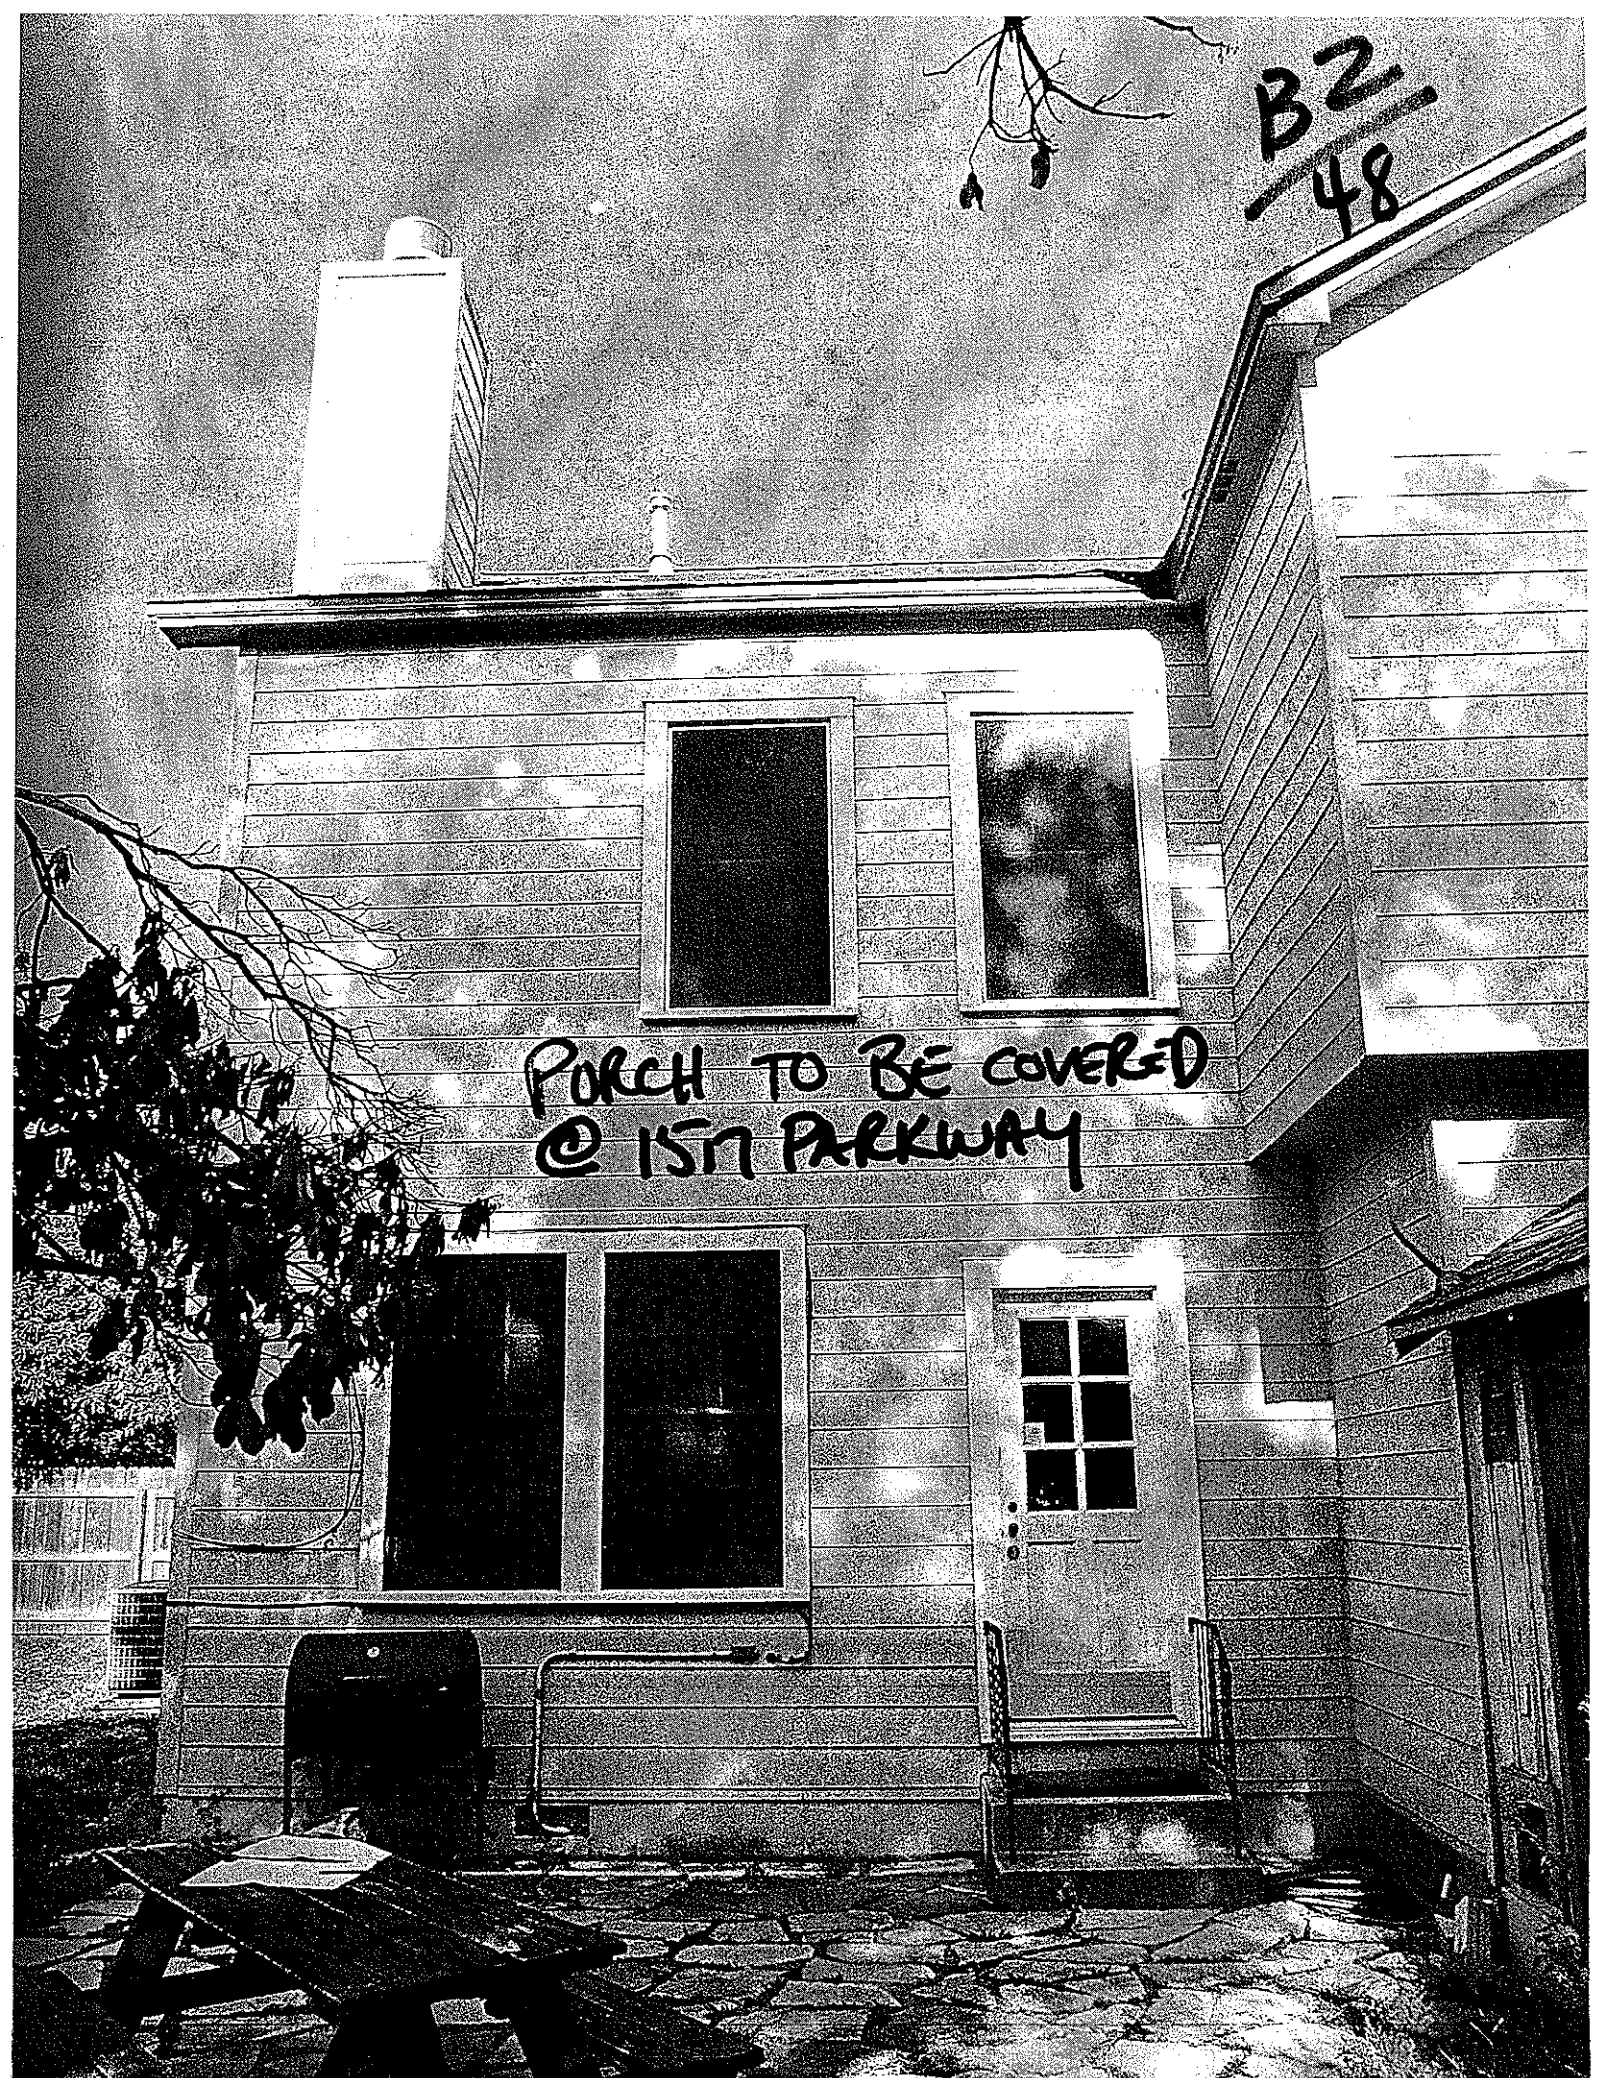 B2
48
PORCH TO BE COVERED
@ 1517 PARKWAY